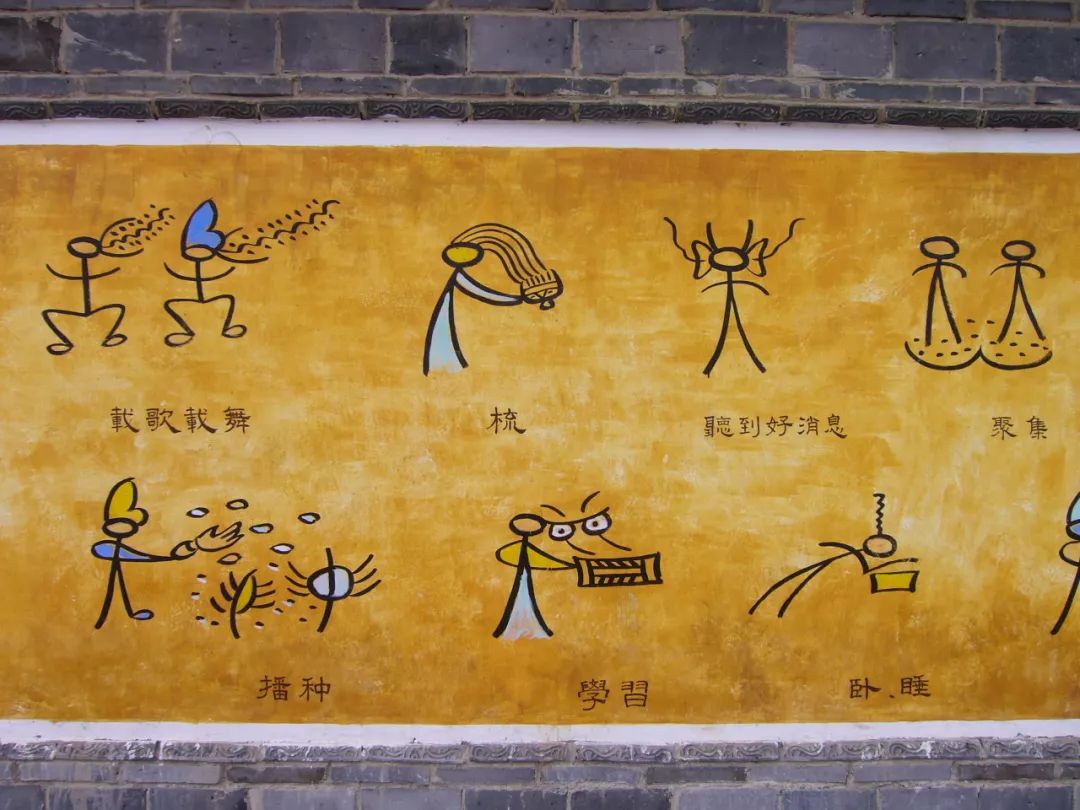 載歌載舞
梳
聽到好消息
聚集
播种
學習
卧、睡